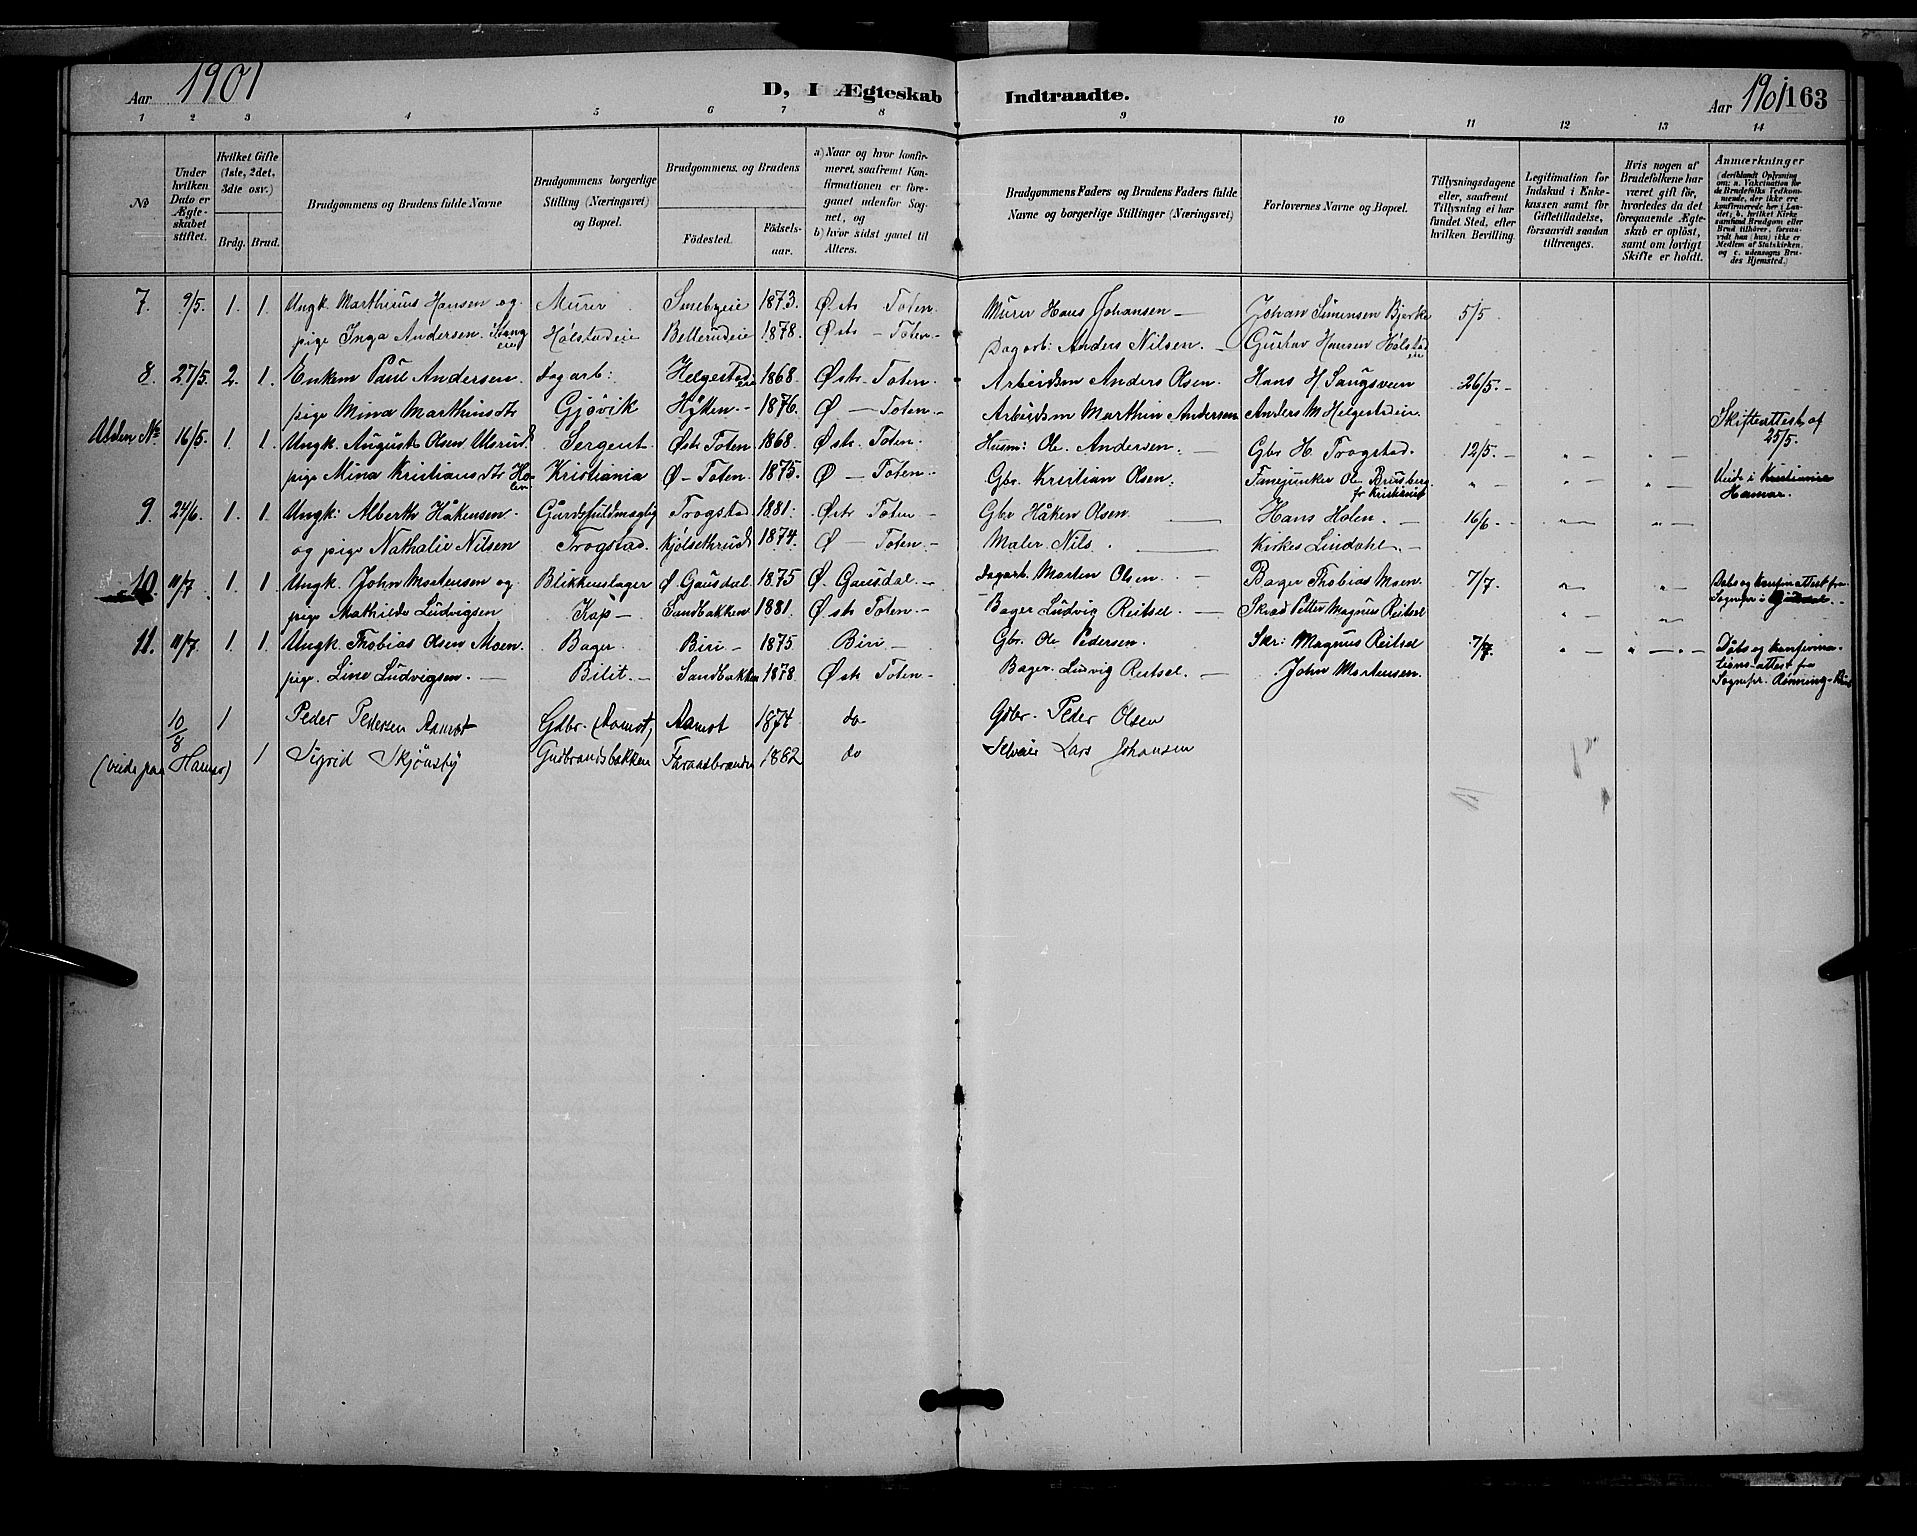 Aar 1901
D, I Ægteskab Indtraadte.
Aar 1901 163
1 2 3 4 5 6 7 8 9 10 11 12 13 14
No
Under hvilken Dato er Ægteskabet stiftet.
Hvilket Gifte (1ste, 2det, 3die osv.)
Brdg. Brud.
Brudgommens og Brudens fulde Navne
Brudgommens borgerlige Stilling (Næringsvei) og Bopæl.
Brudgommens og Brudens
Fødested.
Fødselsaar.
a) Naar og hvor konfirmeret, saafremt Konfirmationen er foregaaet udenfor Sognet, og
b) hvor sidst gaaet til Alters.
Brudgommens Faders og Brudens Faders fulde Navne og borgerlige Stillinger (Næringsvei)
Forlovernes Navne og Bopæl.
Tillysningsdagene eller, saafremt Tillysning ei har fundet Sted, efter hvilken Bevilling.
Legitimation for Indskud i Enkekassen samt for Giftetilladelse, forsaavidt saadan tiltrænges.
Hvis nogen af Brudefolkene har været gift før, hvorledes da det foregaaende Ægteskab er opløst, samt om lovligt Skifte er holdt.
Anmærkninger (deriblandt Oplysning om: a. Vakcination for de Brudefolks Vedkommende, der ikke ere konfirmerede her i Landet; b. hvilket Kirkesamfund Brudgom eller Brud tilhører, forsaavidt han (hun) ikke er Medlem af Statskirken, og c. udensogns Brudes Hjemsted.)
7. 9/5. 1. 1. Ungk. Marthinus Hansen og Murer Smebyeie 1873. Østr Toten. Murer Hans Johansen – Johan Simensen Bjerke 5/5
pige Inga Andersen. Hølstadeie Bellerudeie 1878. Østr – Toten – Dagarb: Anders Nilsen. – Gustav Hansen Hølstadeie
8. 27/5. 2. 1. Enkem Paul Andersen. Dagarb: Helgestadeie 1868. Østr – Toten. Arbeidsm Anders Olsen. Hans H Sangsveen 26/5.
pige Mina Marthinsdtr Gjøvik Hytten – 1876. Ø – Toten. – Arbeidsm Marthin Andersen Anders M Helgestadeie. Skifteattest af 25/5.
Uden No 16/5. 1. 1. Ungk. August Olsen Ulsrud Sergent. Østr Toten 1868. Østr. Toten. Husm: Ole Andersen. Gbr H. Trogstad. 12/5. –
pige Mina Kristiansdtr Holen Kristiania Ø – Toten. 1875. Ø – Toten. – Gbr. Kristian Olsen. Fanejunker Ole Brusberg fr Kristiania Viede i Kristiania Hamar.
9. 24/6. 1. 1. Ungk: Alberth Håkensen. Gårdsfuldmægtig Trogstad. 1881. Østr Toten – Gbr Håken Olsen. Hans Holen. – 16/6 –
og pige Nathalie Nilsen Trogstad. Kjølsethrud 1874. Ø – Toten. – Maler Nils. Kirkes Lindahl. –
10 11/7 1. 1 Ungk. John Mortensen og Blikkenslager Ø. Gausdal. 1875 Ø. Gausdal. – Dagarb. Morten Olsen. – Bager Thobias Moen 7/7 Dåbs og konfirm attest fra Sognepr i
pige Mathilde Ludvigsen Kap – Sandbakken 1881. Østr Toten – Bager Ludvig Reitsel. – Skræd Petter Magnus Reitsel
11. 11/7 1. 1 Ungk. Thobias Olsen Moen. Bager. Biri – 1875. Biri – Gbr. Ole Pedersen. Skr: Magnus Reitsel 7/7. Dåbs og konfirmations-attest fra
pige. Line Ludvigsen. – Bilit. – Sandbakken 1878. Østr Toten – Bager. Ludvig Reitsel. – John Mortensen. Sognepr. Rønning – Biri
10/8 1 Peder Pedersen Aamot Gdbr. (Aamot) Aamot 1874 do Gdbr. Peder Olsen
(viede paa Hamar) 1 Sigrid Skjønsby Gudbrandsbakken 1882 do Selveier Lars Johansen